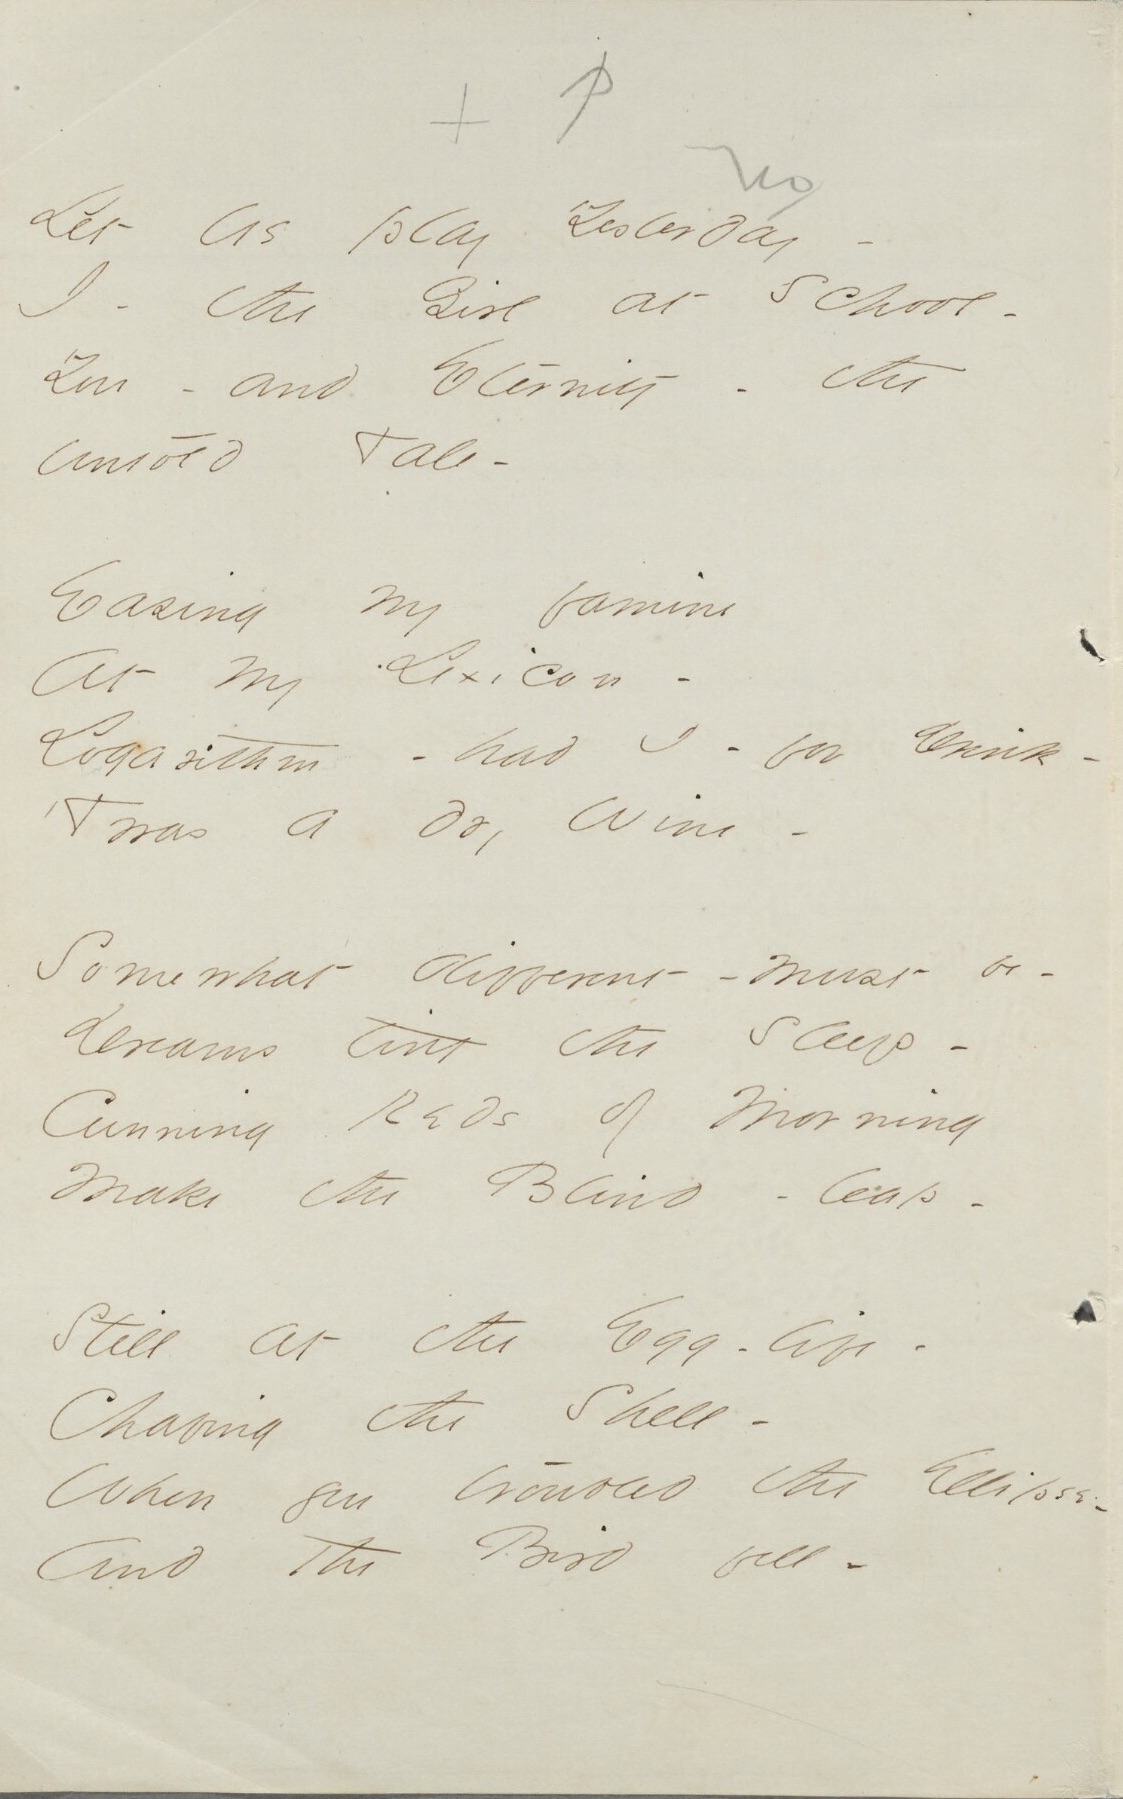 + P
No
Let Us play Yesterday -
I - the Girl at School -
You - and Eternity - the
untold Tale -
Easing my famine
At my Lexicon -
Logarithm - had I - for Drink -
'Twas a dry Wine -
Somewhat different - must be -
Dreams tint the Sleep -
Cunning Reds of Morning
Make the Blind - leap -
Still at the Egg-life -
Chafing the Shell -
When you troubled the Ellipse -
And the Bird fell -